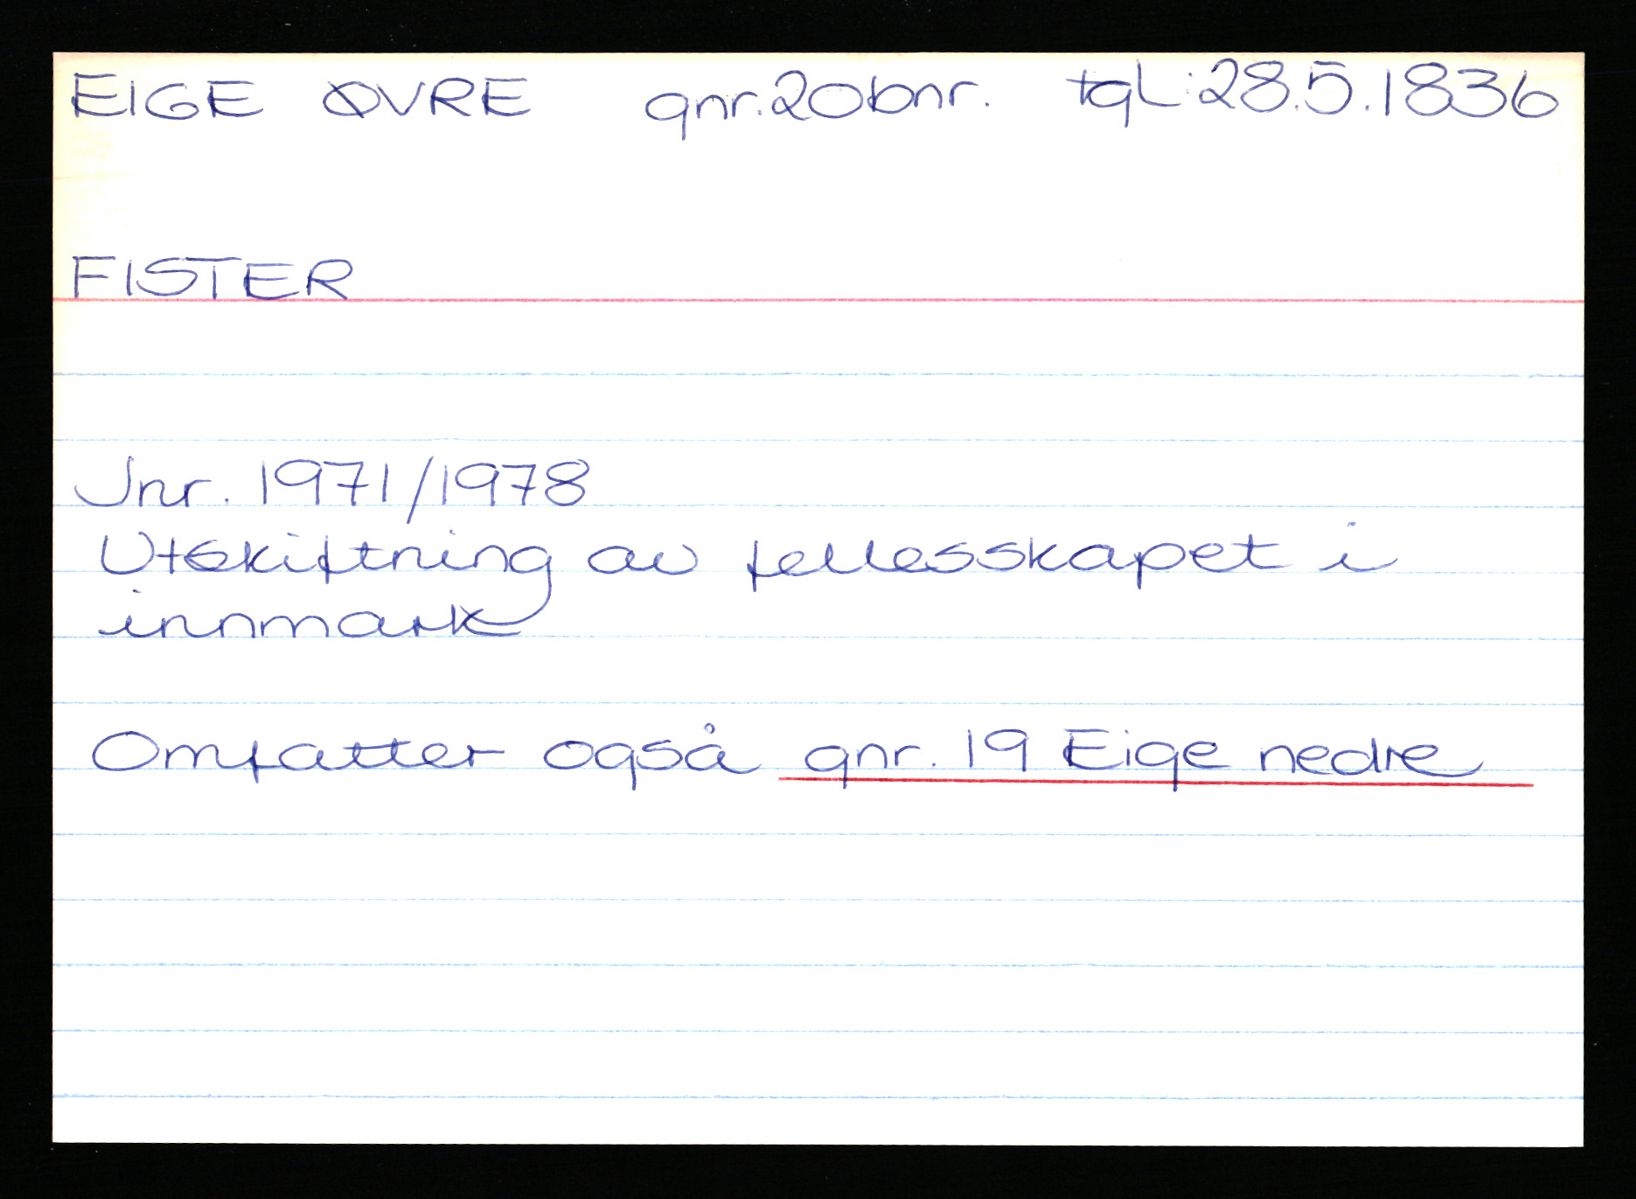 EIGE ØVRE gnr. 20 bnr. tgl: 28.5.1836
FISTER
Jnr. 1971/1978
Utskiftning av fellesskapet i
innmark
Omfatter også gnr. 19 Eige nedre